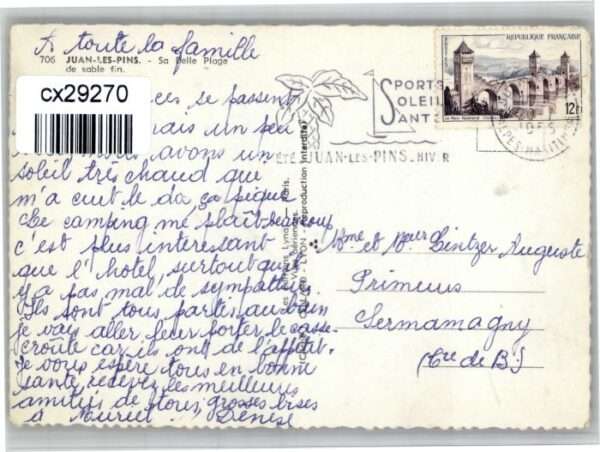 A toute la famille
706 JUAN-LES-PINS. - Sa Belle Plage
de sable fin.
cx29270
se passent
mais un peu
avons un
soleil très chaud que
m'a cuit le do, ça pique
Le camping me plaît beaucoup
c'est plus intéressant
que l'hotel, surtout qu'il
y a pas mal de sympathie
Ils sont tous partis au bain
je vais aller leur porter le casse
croûte car ils ont de l'appétit.
Je vous espère tous en bonne
santé, recevez les meilleurs
amitiés de tous, grosses bises
à Muriel Denise
REPUBLIQUE FRANÇAISE
12f
SPORTS
SOLEIL
SANTE
ÉTÉ JUAN-LES-PINS. HIVER
Reproduction interdite
Mme et Mr Lintzer Auguste
Primeurs
Sermamagny
(Tre de B)